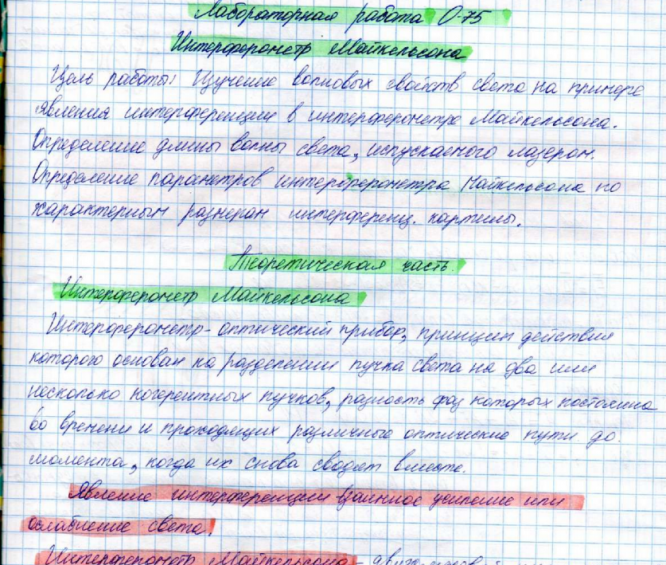 Лабораторная работа О-75
Интерферометр Майкельсона
Цель работы: Изучение волновых свойств света на примере
явления интерференции в интерферометре Майкельсона.
Определение длины волны света, испускаемого лазером.
Определение параметров интерферометра Майкельсона по
характерным размерам интерференц. картины.
Теоретическая часть.
Интерферометр Майкельсона
Интерферометр - оптический прибор, принцип действия
которого основан на разделении пучка света на два или
несколько когерентных пучков, разность фаз которых постоянна
во времени и проходящих различные оптические пути до
момента, когда их снова сведет вместе.
Явление интерференции взаимное усиление или
ослабление света.
Интерферометр Майкельсона -